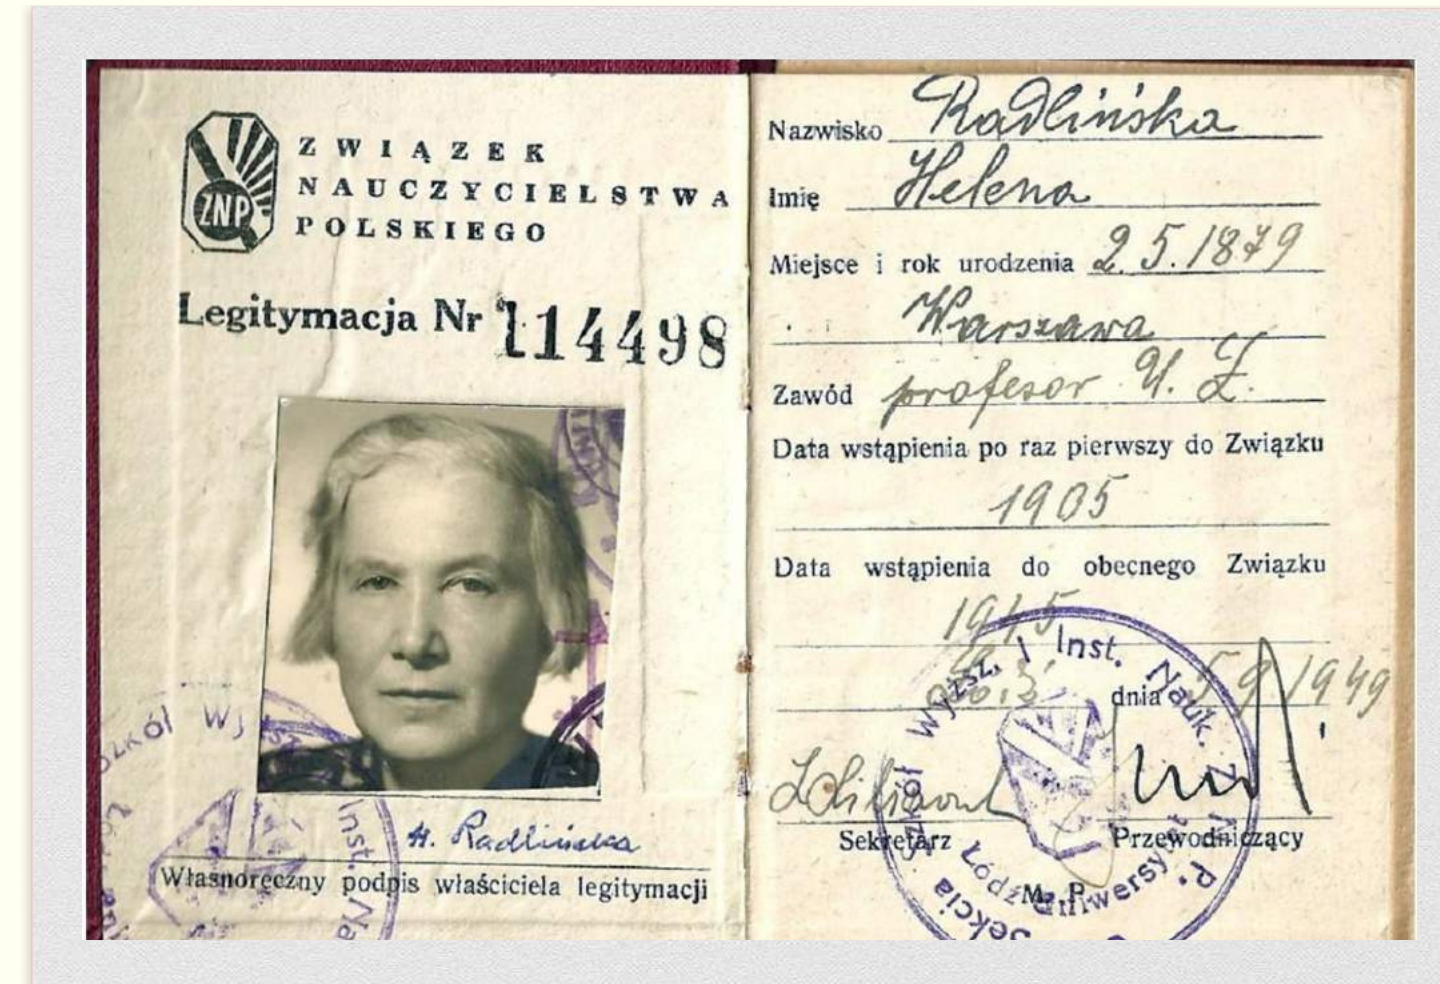 ZNP
ZWIĄZEK
NAUCZYCIELSTWA
POLSKIEGO
Legitymacja Nr 114498
H. Radlińska
Własnoręczny podpis właściciela legitymacji
Szkół Wy
Inst. Na
Nazwisko Radlińska
Imię Helena
Miejsce i rok urodzenia 2.5.1879
Warszawa
Zawód profesor U. Ł.
Data wstąpienia po raz pierwszy do Związku
1905
Data wstąpienia do obecnego Związku
1945
dnia 5 9 1949
Sekretarz Przewodniczący
M. P.
Sekcja Szkół Wyższ. I Inst. Nauk. Z. N. P.
Łódź Uniwersytet